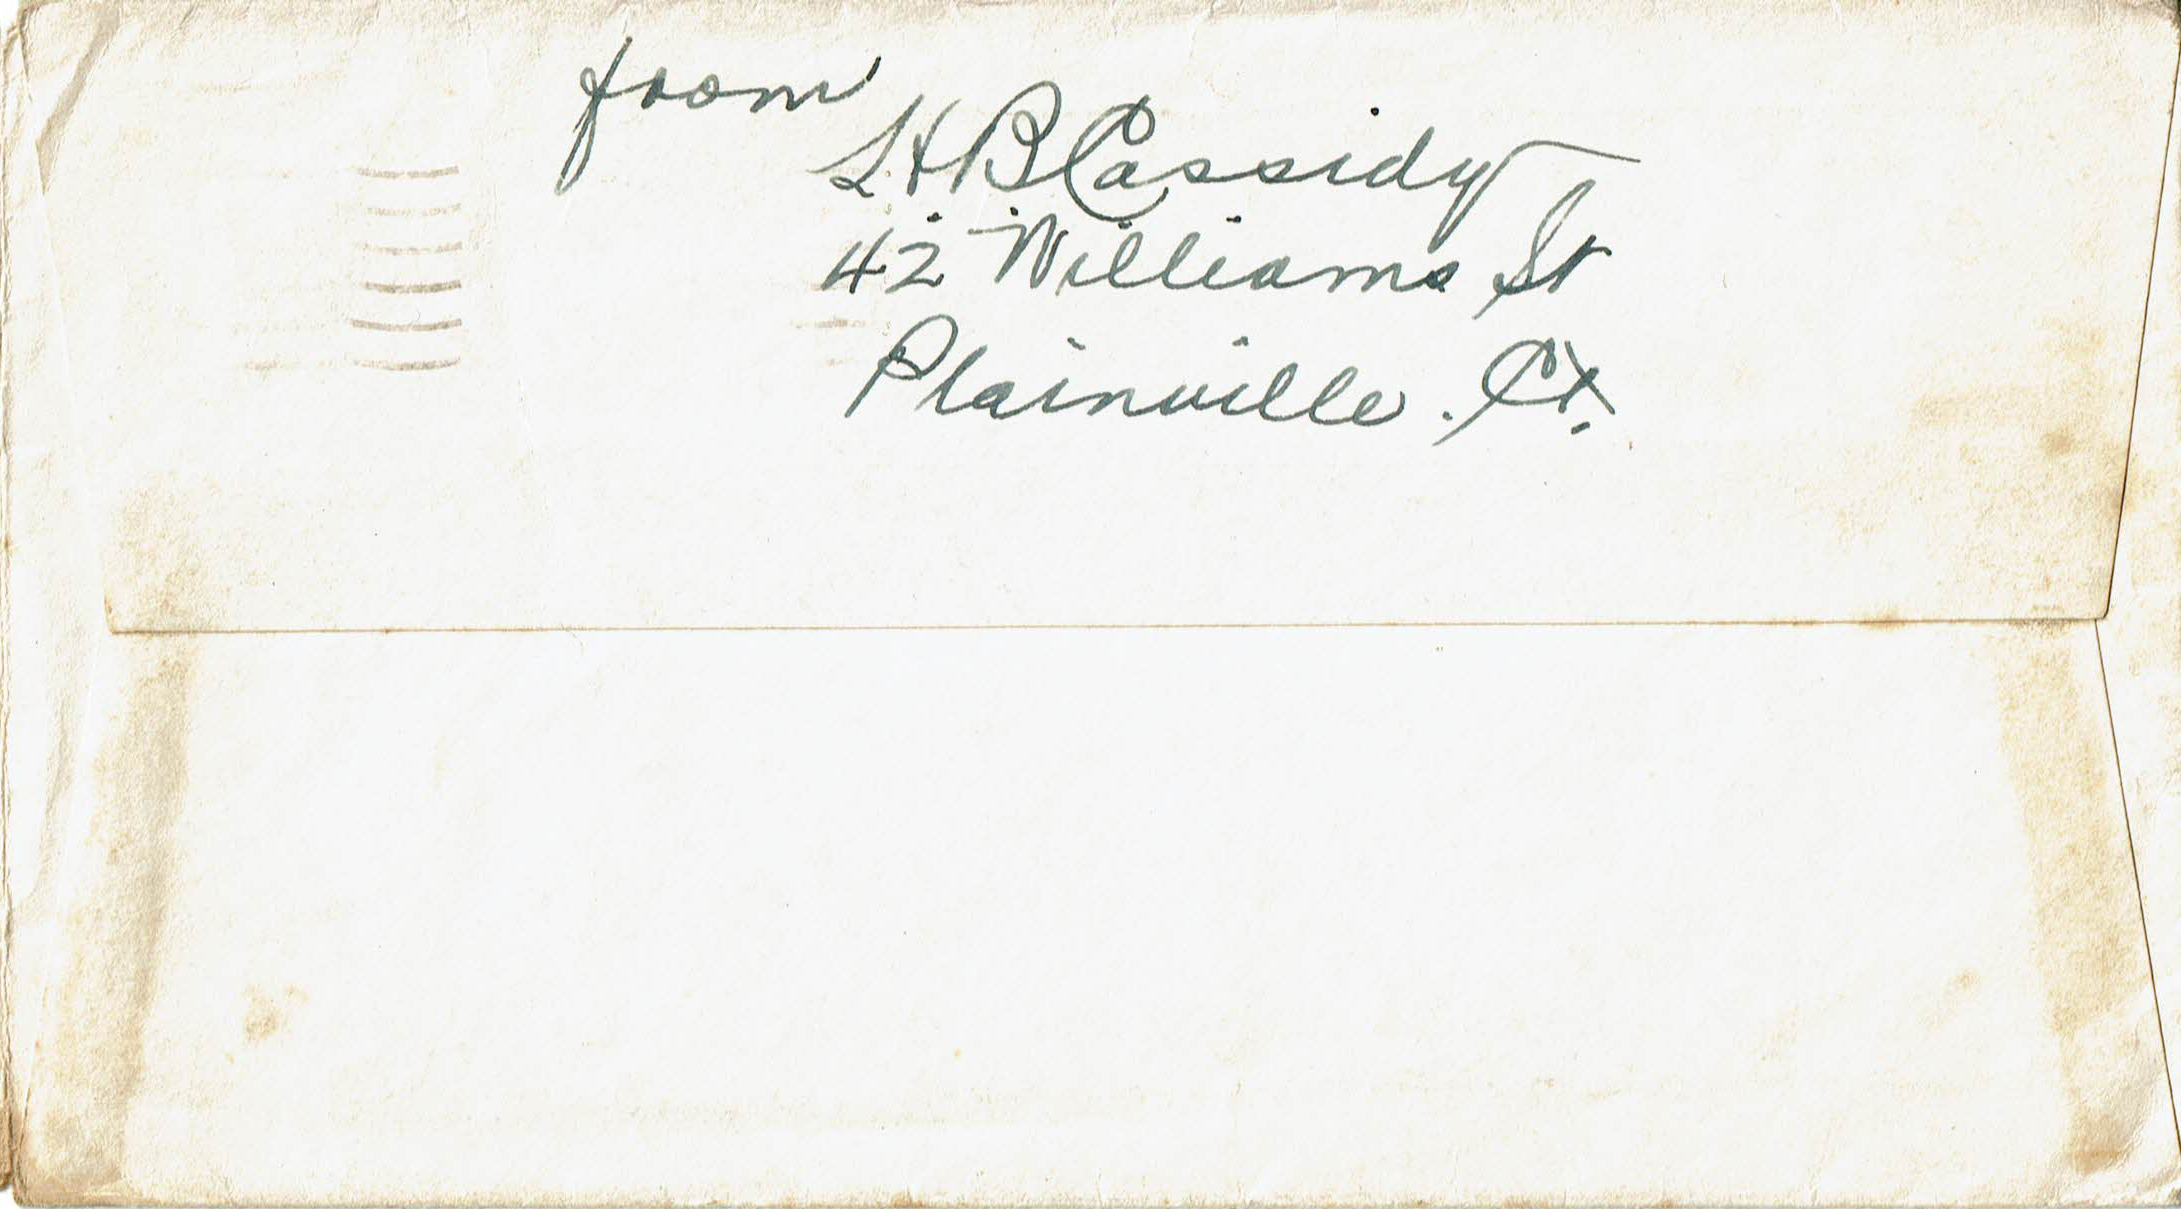 from
L H B Cassidy
42 Williams St
Plainville. Ct.